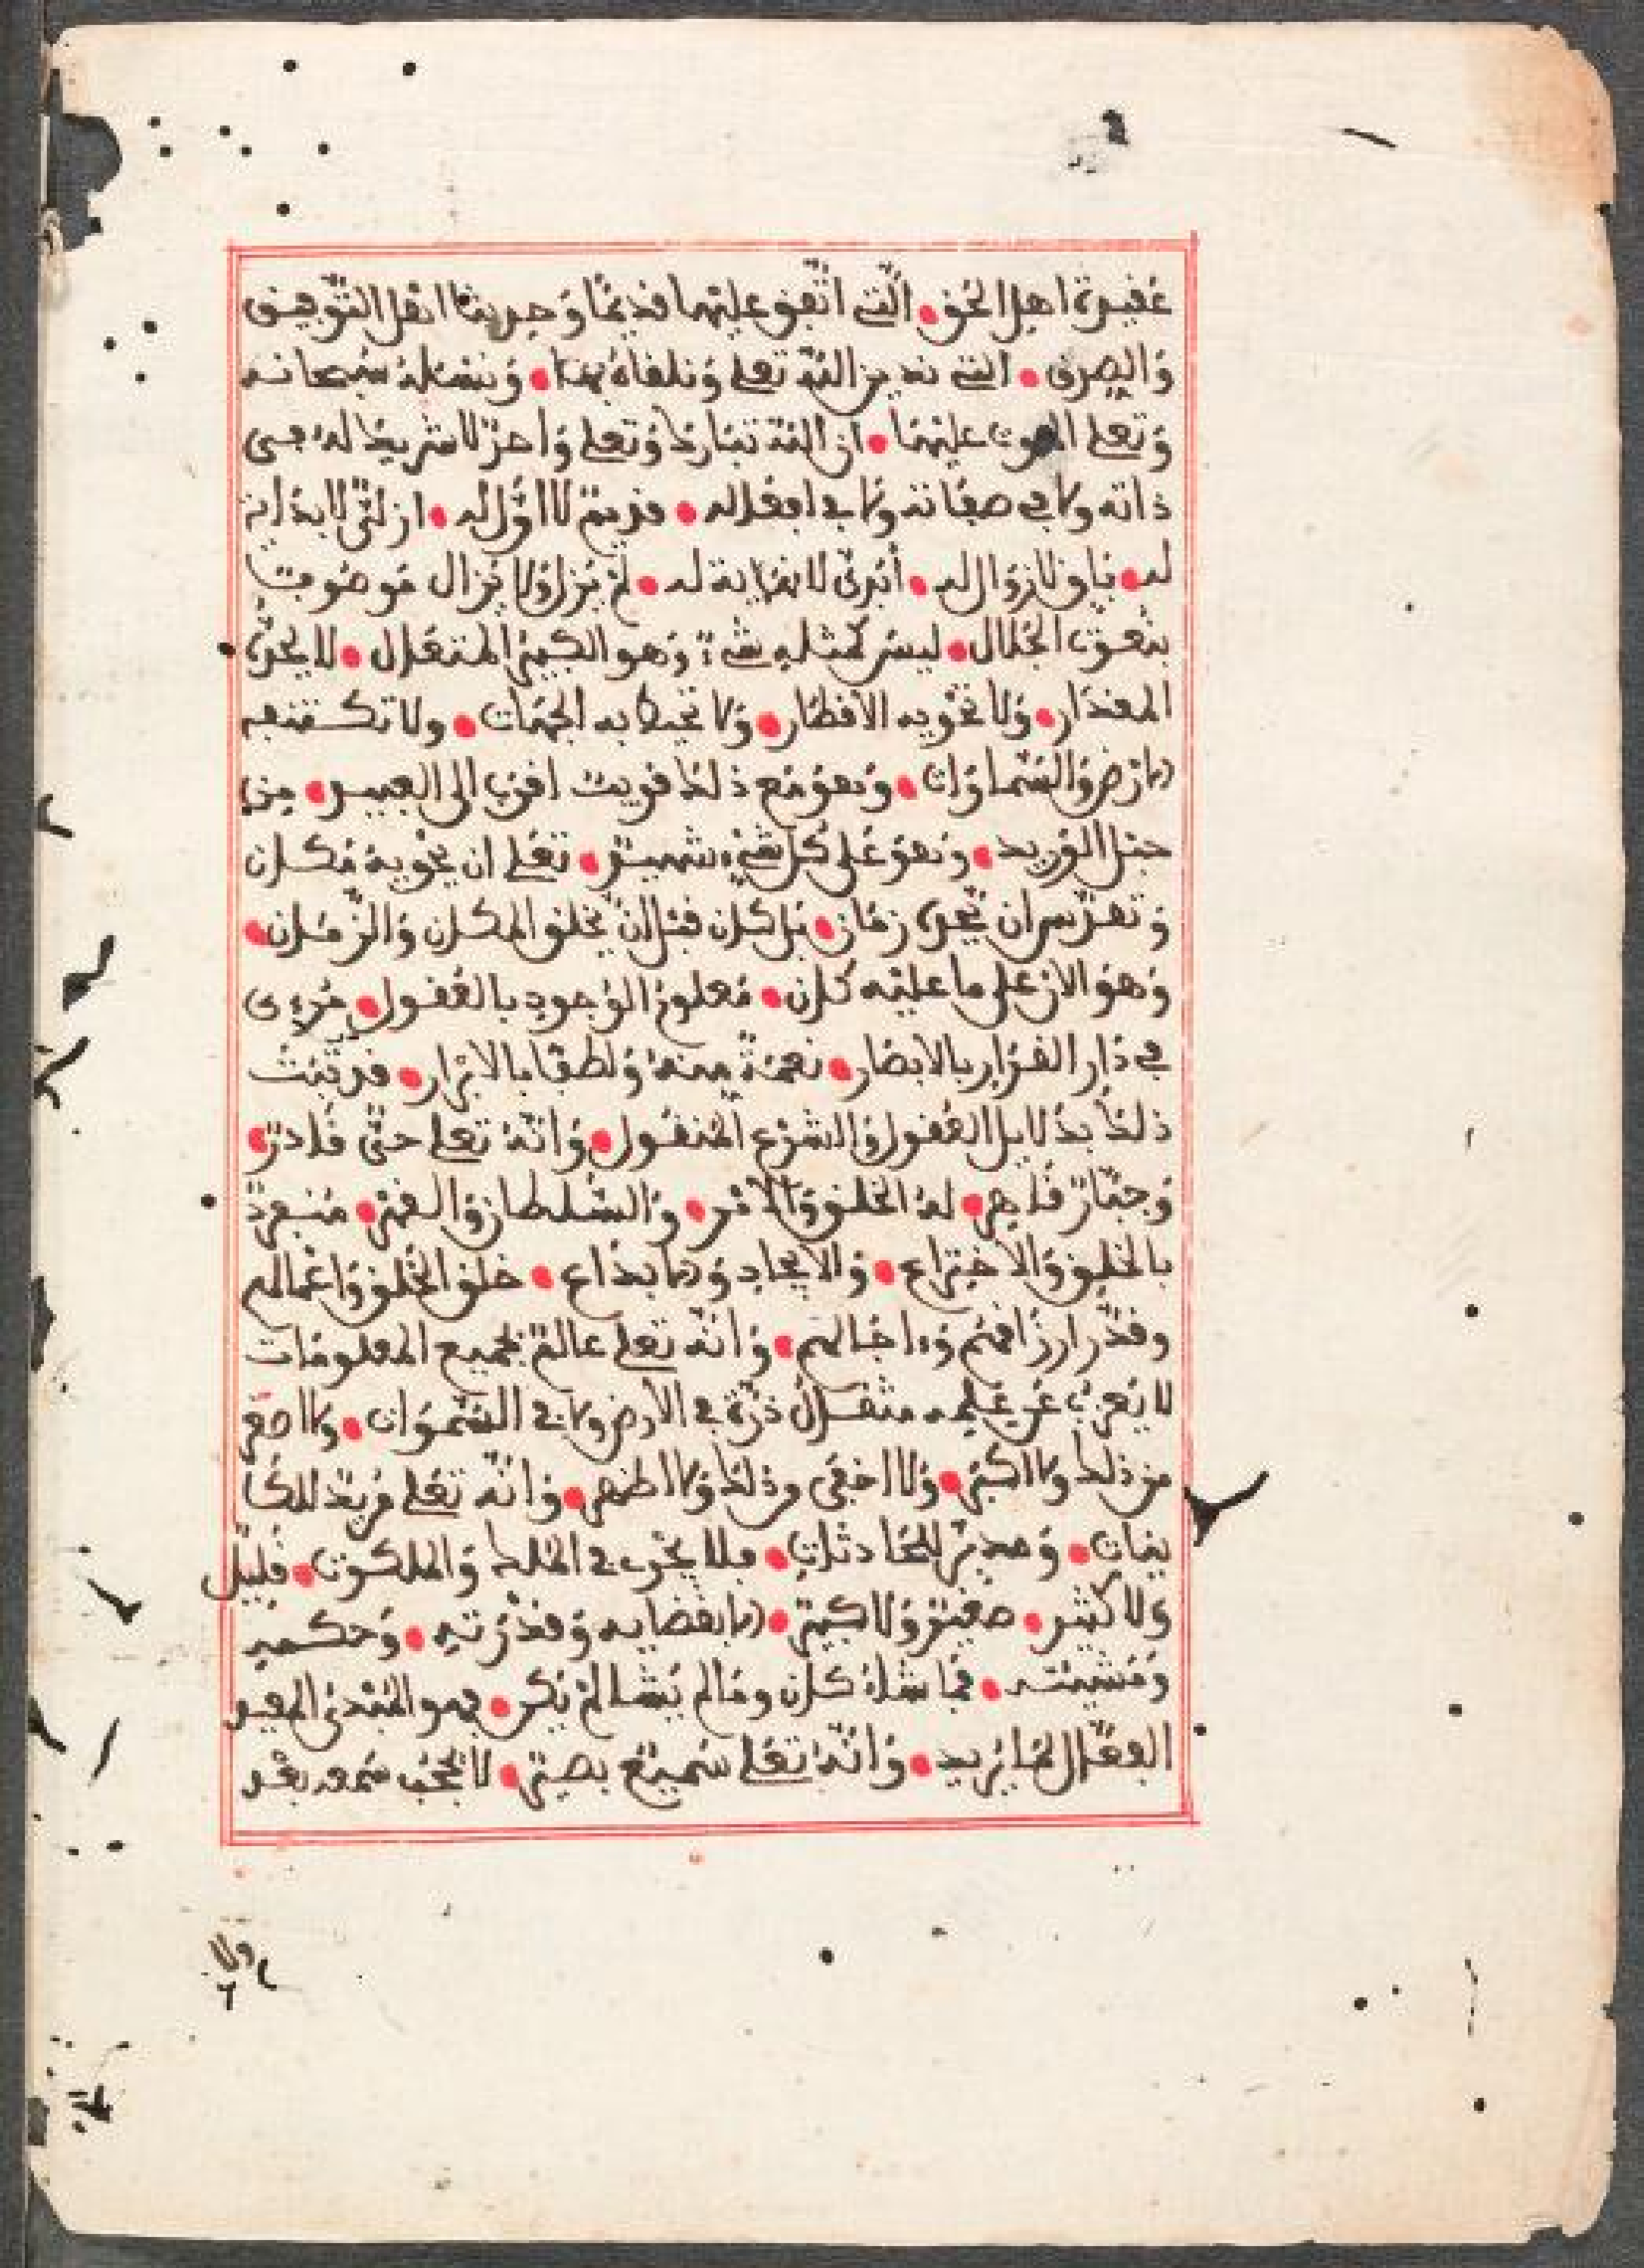 عقيدة اهل الحق • التي اتفق عليها قديما وحديثا اهل التوفيق
والصدق • التي ندين الله تعلى ونلقاه بها • ونسئله سبحانه
وتعلى الموت عليها • ان الله تبارك وتعلى واحد لا شريك له في
ذاته ولا في صفاته ولا في افعاله • قديم لا اول له • ازلي لا بداية
له • باق لا زوال له • أبدي لا نهاية له • لم يزل ولا يزال موصوف
بنعوت الجلال • ليس كمثله شيء وهو الكبير المتعال • لا يحده
المقدار • ولا تحويه الاقطار • ولا تحيط به الجهات • ولا تكتنفه
الارض والسماوات • وهو مع ذلك قريب اقرب الى العبيد • من
حبل الوريد • وهو على كل شيء شهيد • تعلى ان يحويه مكان
وتقدس ان يحده زمان • بل كان قبل ان يخلق المكان والزمان •
وهو الان على ما عليه كان • معلوم الوجود بالعقول • مرءى
في دار القرار بالابصار • نعمة منه ولطفا بالابرار • قد ثبت
ذلك بدلايل العقول والشرع المنقول • وانه تعلى حي قادر •
وجبار قاهر • له الخلق والامر • والسلطان والقهر • منفرد
بالخلق والاختراع • والايجاد والابداع • خلق الخلق واعمالهم
وقدر ارزاقهم وءاجالهم • وانه تعلى عالم بجميع المعلومات
لا يعزب عن علمه مثقال ذرة في الارض ولا في السموات • ولا اصغر
من ذلك ولا اكبر • ولا اخفى من ذلك ولا اظهر • وانه تعلى مريد للكا
ينات • ومدبر للحادثات • فلا يجري في الملك والملكوت • قليل
ولا كثير • صغير ولا كبير • الا بقضايه وقدرته • وحكمه
ومشيئته • فما شاء كان وما لم يشا لم يكن • فهو المبدئ المعيد
الفعال لما يريد • وانه تعلى سميع بصير • لا يحجب سمعه بعد
ولا